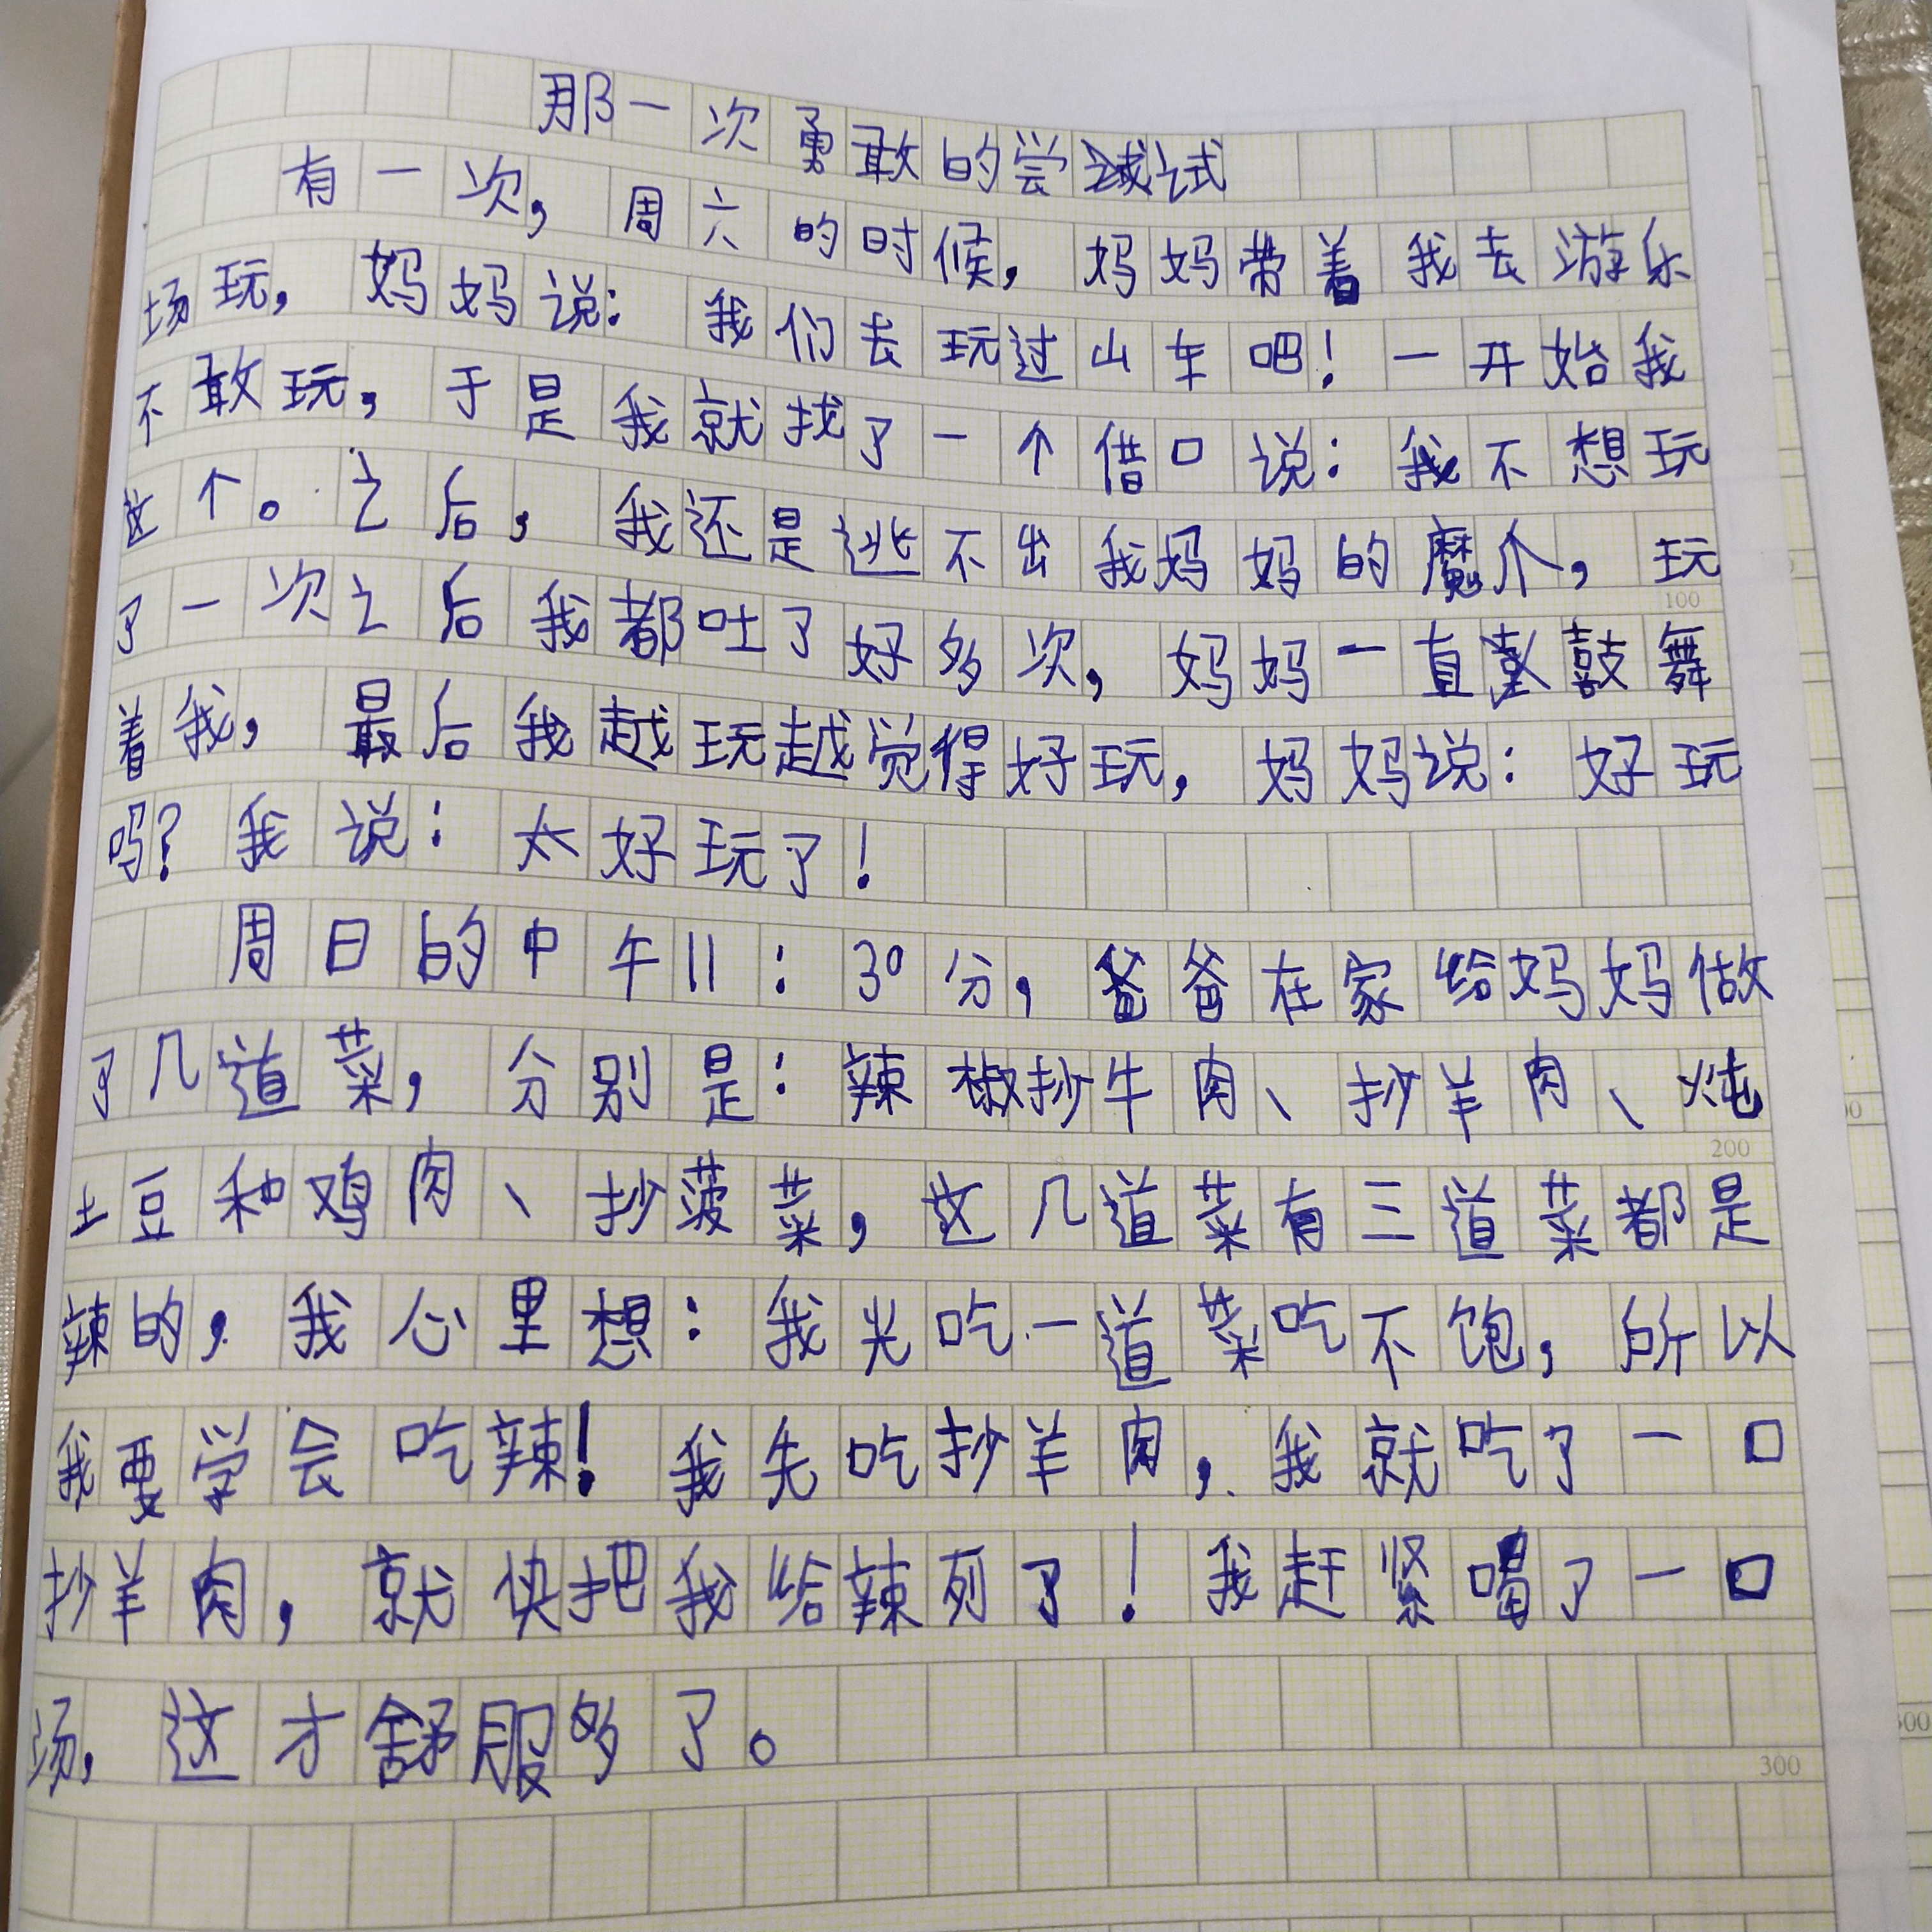 那一次勇敢的尝试
有一次，周六的时候，妈妈带着我去游乐
场玩，妈妈说：我们去玩过山车吧！一开始我
不敢玩，于是我就找了一个借口说：我不想玩
这个。之后，我还是逃不出我妈妈的魔爪，玩
了一次之后我都吐了好多次，妈妈一直鼓舞
着我，最后我越玩越觉得好玩，妈妈说：好玩
吗？我说：太好玩了！
周日的中午11：30分，爸爸在家给妈妈做
了几道菜，分别是：辣椒抄牛肉、抄羊肉、炖
土豆和鸡肉、抄菠菜，这几道菜有三道菜都是
辣的，我心里想：我光吃一道菜吃不饱，所以
我要学会吃辣！我先吃抄羊肉，我就吃了一口
抄羊肉，就快把我给辣死了！我赶紧喝了一口
汤，这才舒服多了。
100
200
300